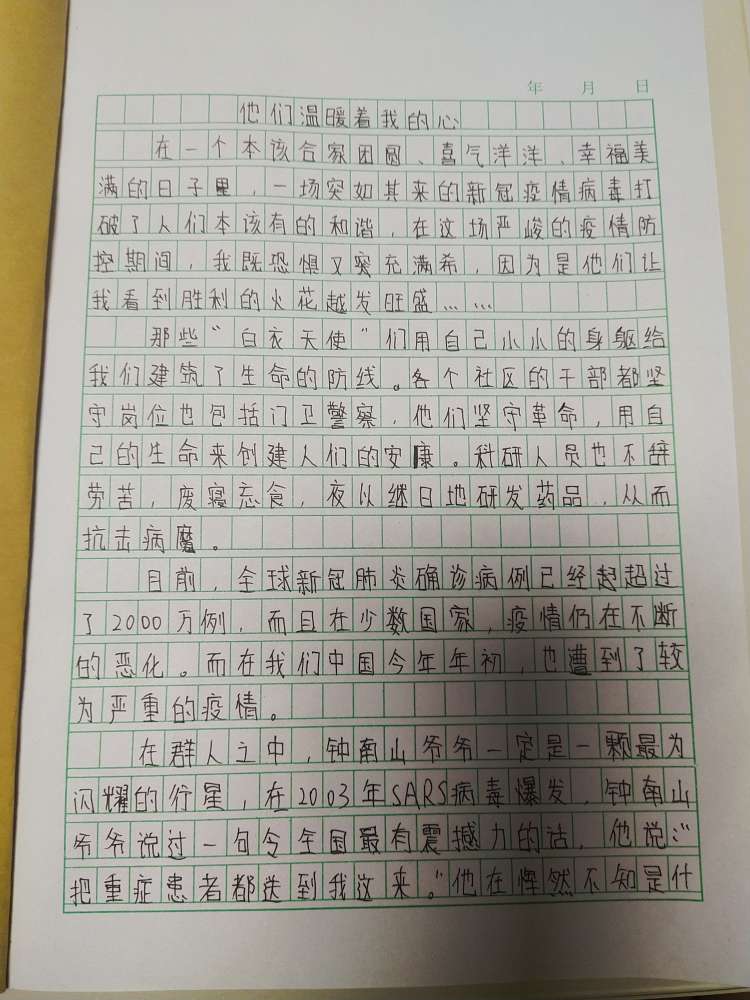 年 月 日
他们温暖着我的心
在一个本该合家团圆、喜气洋洋、幸福美
满的日子里，一场突如其来的新冠疫情病毒打
破了人们本该有的和谐，在这场严峻的疫情防
控期间，我既恐惧又突充满希，因为是他们让
我看到胜利的火花越发旺盛……
那些“白衣天使”们用自己小小的身躯给
我们建筑了生命的防线。各个社区的干部都坚
守岗位也包括门卫警察，他们坚守革命，用自
己的生命来创建人们的安康。科研人员也不辞
劳苦，废寝忘食，夜以继日地研发药品，从而
抗击病魔。
目前，全球新冠肺炎确诊病例已经起超过
了2000万例，而且在少数国家，疫情仍在不断
的恶化。而在我们中国今年年初，也遭到了较
为严重的疫情。
在群人之中，钟南山爷爷一定是一颗最为
闪耀的行星，在2003年SARS病毒爆发，钟南山
爷爷说过一句令全国最有震撼力的话，他说：“
把重症患者都送到我这来。”他在恽然不知是什